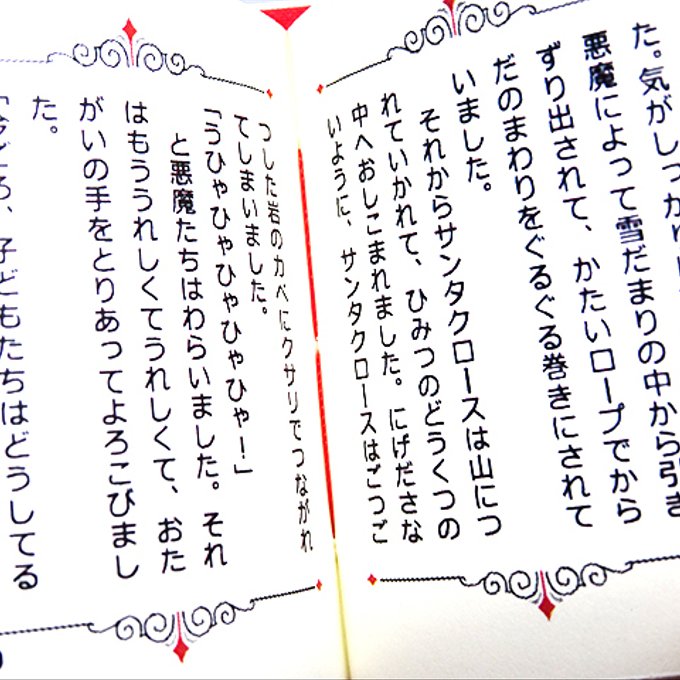 た。気がしっかり
悪魔によって雪だまりの中から引き
ずり出されて、かたいロープでから
だのまわりをぐるぐる巻きにされて
いました。
それからサンタクロースは山につ
れていかれて、ひみつのどうくつの
中へおしこまれました。にげださな
いように、サンタクロースはごつご
つした岩のカベにクサリでつながれ
てしまいました。
「うひゃひゃひゃひゃひゃ！」
と悪魔たちはわらいました。それ
はもううれしくてうれしくて、おた
がいの手をとりあってよろこびまし
た。
「今ごろ、子どもたちはどうしてる